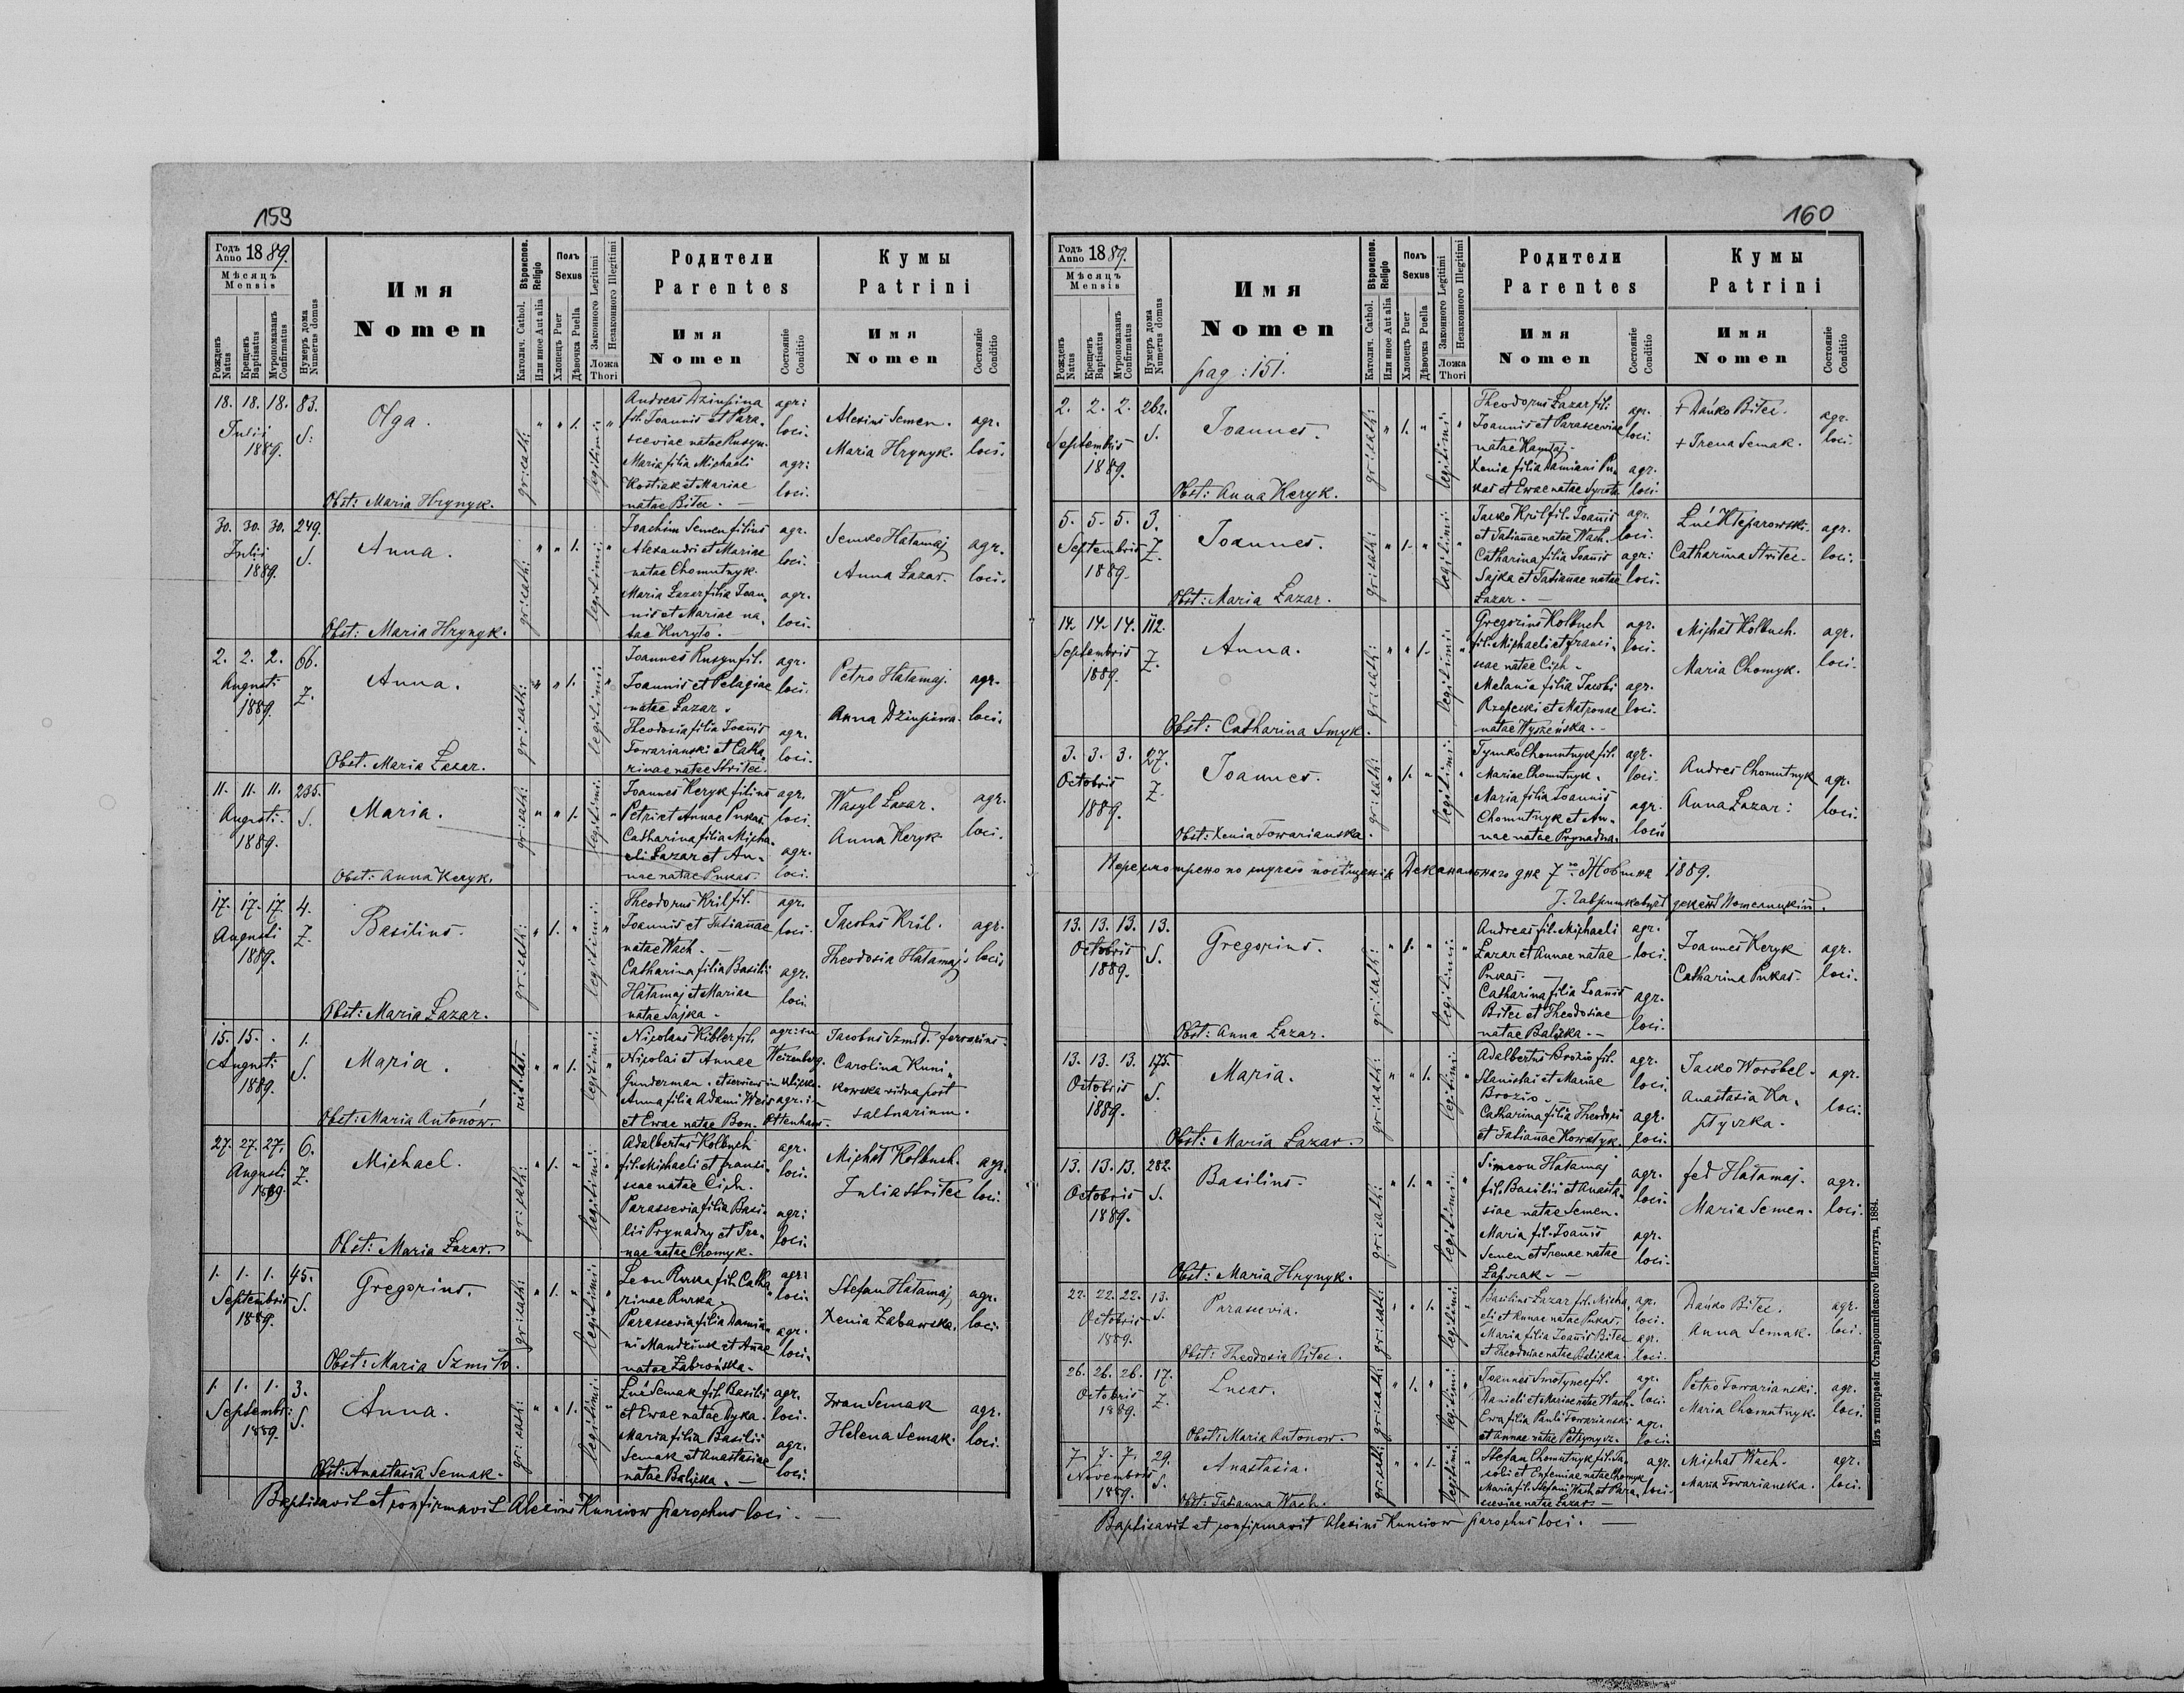 159
Годъ Anno 1889.
Мѣсяцъ Mensis
Рожденъ Natus
Крещенъ Baptisatus
Муропомазанъ Confirmatus
Нумеръ дома Numerus domus
Имя Nomen
Вѣроиспов. Religio
Католич. Cathol.
Или иное Aut alia
Полъ Sexus
Хлопецъ Puer
Дѣвочка Puella
Законного Legitimi
Незаконного Illegitimi
Ложа Thori
Родители Parentes
Имя Nomen
Состояніе Conditio
Кумы Patrini
Имя Nomen
Состояніе Conditio
18. 18. 18. 83.
Julii S.
1889.
Olga.
Obst: Maria Hrynyk.
gr: cath:
" " 1.
legitimi:
Andreas Dziupina agr:
fil. Joannis et Para-
sceviae natae Rusyn. loci.
Maria filia Michaeli agr:
Kostiak et Mariae loci.
natae Bitec. —
Alexius Semen. agr.
Maria Hrynyk. loci.
30. 30. 30. 249.
Julii S.
1889.
Anna.
Obst: Maria Hrynyk.
gr: cath:
" " 1.
legitimi:
Joachim Semen filius agr.
Alexandri et Mariae loci.
natae Chomutnyk.
Maria Lazar filia Joan- agr.
nis et Mariae na- loci.
tae Kuryło. —
Semko Hałamaj agr.
Anna Lazar. loci.
2. 2. 2. 66.
Augusti Z.
1889.
Anna.
Obst. Maria Łazar.
gr: cath:
" " 1.
legitimi:
Joannes Rusyn fil. agr.
Joannis et Pelagiae loci.
natae Lazar.
Theodosia filia Joannis agr.
Towarianski et Catha- loci.
rinae natae Stritec.
Petro Hałamaj. agr.
Anna Dziupina. loci.
11. 11. 11. 235.
Augusti. S.
1889.
Maria.
Obst: Anna Keryk.
gr: cath:
" " 1.
legitimi:
Joannes Keryk filius agr.
Petri et Annae Pukas. loci.
Catharina filia Micha-
eli Lazar et An- agr.
nae natae Pukas. loci.
Wasyl Lazar. agr.
Anna Keryk loci.
17. 17. 17. 4.
Augusti Z.
1889.
Basilius.
Obst: Maria Lazar.
gr: cath:
" 1. "
legitimi:
Theodorus Kril fil. agr.
Joannis et Tatiannae loci.
natae Wach. —
Catharina filia Basili agr.
Hałamaj et Mariae loci
natae Sajka.
Jacobus Król. agr.
Theodosia Hałamaj. loci
15. 15. . 1.
Augusti S.
1889.
Maria.
Obst: Maria Antonów.
rit: lat.
" " 1.
legitimi:
Nicolaus Kibler fil.
Nicolai et Annae Weizenberg.
Gunderman. et serviens in
Anna filia Adami Weis agr. in
et Ewae natae Bon. Ottenhaus.
Jacobus Szmid. ferrarius.
Carolina Kuni-
kowska vidua post
saltuarium.
27. 27. 27. 6.
Augusti Z.
1889.
Michael.
Obst: Maria Lazar.
gr: cath:
" 1. "
legitimi:
Adalbertus Kolbuch agr.
fil. Michaeli et Franci- loci.
scae natae Cich.
Parascevia filia Basi- agr:
lii Prynadny et Ire- loci.
nae natae Chomyk.
Michał Kolbuch. agr.
Julia Stritec loci.
1. 1. 1. 45.
Septembris S.
1889.
Gregorius.
Obst: Maria Szmito.
gr: cath:
" 1. "
legitimi:
Leon Rurka fil. Catha- agr:
rinae Rurka loci.
Parascevia filia Damia- agr.
ni Mandziuk et Annae loci.
natae Zabrońska.
Stefan Hałamaj agr.
Xenia Zabawska. loci.
1. 1. 1. 3.
Septembr: S.
1889.
Anna.
Obst: Anastasia Semak.
gr: cath:
" " 1.
legitimi:
Luć Semak fil. Basilii agr.
et Ewae natae Dyka. loci.
Maria filia Basilii
Semak et Anastasiae agr.
natae Balicka. — loci.
Iwan Semak agr.
Helena Semak. loci.
Baptisavit et confirmavit Alexius Kunciow parochus loci. —
160
Годъ Anno 1889.
Мѣсяцъ Mensis
Рожденъ Natus
Крещенъ Baptisatus
Муропомазанъ Confirmatus
Нумеръ дома Numerus domus
Имя Nomen
pag: 151.
Вѣроиспов. Religio
Католич. Cathol.
Или иное Aut alia
Полъ Sexus
Хлопецъ Puer
Дѣвочка Puella
Законного Legitimi
Незаконного Illegitimi
Ложа Thori
Родители Parentes
Имя Nomen
Состояніе Conditio
Кумы Patrini
Имя Nomen
Состояніе Conditio
2. 2. 2. 262.
Septembris S.
1889.
Joannes.
Obst: Anna Keryk.
gr: cath:
" 1. "
legitimi:
Theodorus Lazar fil: agr.
Joannis et Parasceviae loci.
natae
Xenia filia Damiani Pu- agr.
kas et Ewae natae Syrota. loci.
+ Dańko Bitec. agr.
+ Irena Semak. loci.
5. 5. 5. 3.
Septembris Z.
1889.
Joannes.
Obst: Maria Lazar.
gr: cath:
" 1. "
legitimi:
Jacko Kril fil. Joannis agr.
et Tatiannae natae Wach. loci.
Catharina filia Joannis agr:
Sajka et Tatiannae natae loci.
Lazar. —
Luć Kleparowski. agr.
Catharina Stritec. loci.
14. 14. 14. 112.
Septembris Z.
1889.
Anna.
Obst: Catharina Smyk.
gr: cath:
" " 1.
legitimi:
Gregorius Kolbuch agr.
fil. Michaeli et Franci- loci.
scae natae Cich.
Melania filia Jacobi agr.
Rzepecki et Matronae loci.
natae Wyszeńska. —
Michał Kolbuch. agr.
Maria Chomyk. loci.
3. 3. 3. 27.
Octobris Z.
1889.
Joannes.
Obst: Xenia Towarianska.
gr: cath:
" 1. "
legitimi:
Tymko Chomutnyk fil. agr.
Mariae Chomutnyk. loci.
Maria filia Joannis
Chomutnyk et An- agr.
nae natae Prynadna. loci
Andres Chomutnyk agr.
Anna Lazar: loci.
Пересмотрено по случаю посѣщенія Деканального дня 7го Жовтня 1889.
13. 13. 13. 13.
Octobris S.
1889.
Gregorius.
Obst: Anna Lazar.
gr: cath:
" 1. "
legitimi:
Andreas fil. Michaeli agr.
Lazar et Annae natae loci.
Pukas. —
Catharina filia Joannis agr.
Bitec et Theodosiae
natae Balicka. — loci.
Joannes Keryk agr.
Catharina Pukas. loci.
13. 13. 13. 175.
Octobris S.
1889.
Maria.
Obst: Maria Lazar.
gr: cath:
" " 1.
legitimi:
Adalbertus Brozio fil. agr.
Stanislai et Mariae loci
Brozio.
Catharina filia Theodori agr.
et Tatiannae Kowalyk. loci.
Jacko Worobel. agr.
Anastasia Ka-
ptyszka. loci.
13. 13. 13. 282.
Octobris S.
1889.
Basilius.
Obst: Maria Hrynyk.
gr: cath:
" 1. "
legitimi:
Simeon Hałamaj agr.
fil. Basilii et Anasta- loci.
siae natae Semen.
Maria fil. Joannis agr.
Semen et Irenae natae loci.
Fed Hałamaj. agr.
Maria Semen. loci.
22. 22. 22. 13.
Octobris S.
1889.
Parascevia.
Obst: Theodosia Bitec.
gr: cath:
" " 1.
legitimi:
Basilius Lazar fil. Micha- agr.
eli et Annae natae Pukas. loci.
Maria filia Joannis Bitec agr.
et Theodosiae natae Balicka. loci.
Dańko Bitec. agr.
Anna Semak. loci.
26. 26. 26. 17.
Octobris Z.
1889.
Lucas.
Obst: Maria Antonow.
gr: cath:
" 1. "
legitimi:
Joannes Smolynec fil. agr.
Danieli et Mariae natae Wach. loci.
Ewa filia Pauli Towarianski agr.
et Annae natae loci.
Petro Towarianski. agr.
Maria Chomutnyk. loci.
7. 7. 7. 29.
Novembris S.
1889.
Anastasia.
Obst: Tatianna Wach.
gr: cath:
" " 1.
legitimi:
Stefan Chomutnyk fil. Ja- agr.
cobi et Eufemiae natae Chomyk
Maria fil. Stefani Wach et Para- loci.
sceviae natae Lazar. —
Michał Wach. agr.
Maria Towarianska. loci.
Baptisavit et confirmavit Alexius Kunciow parochus loci. —
Изъ типографіи Ставропигійского Института, 1884.